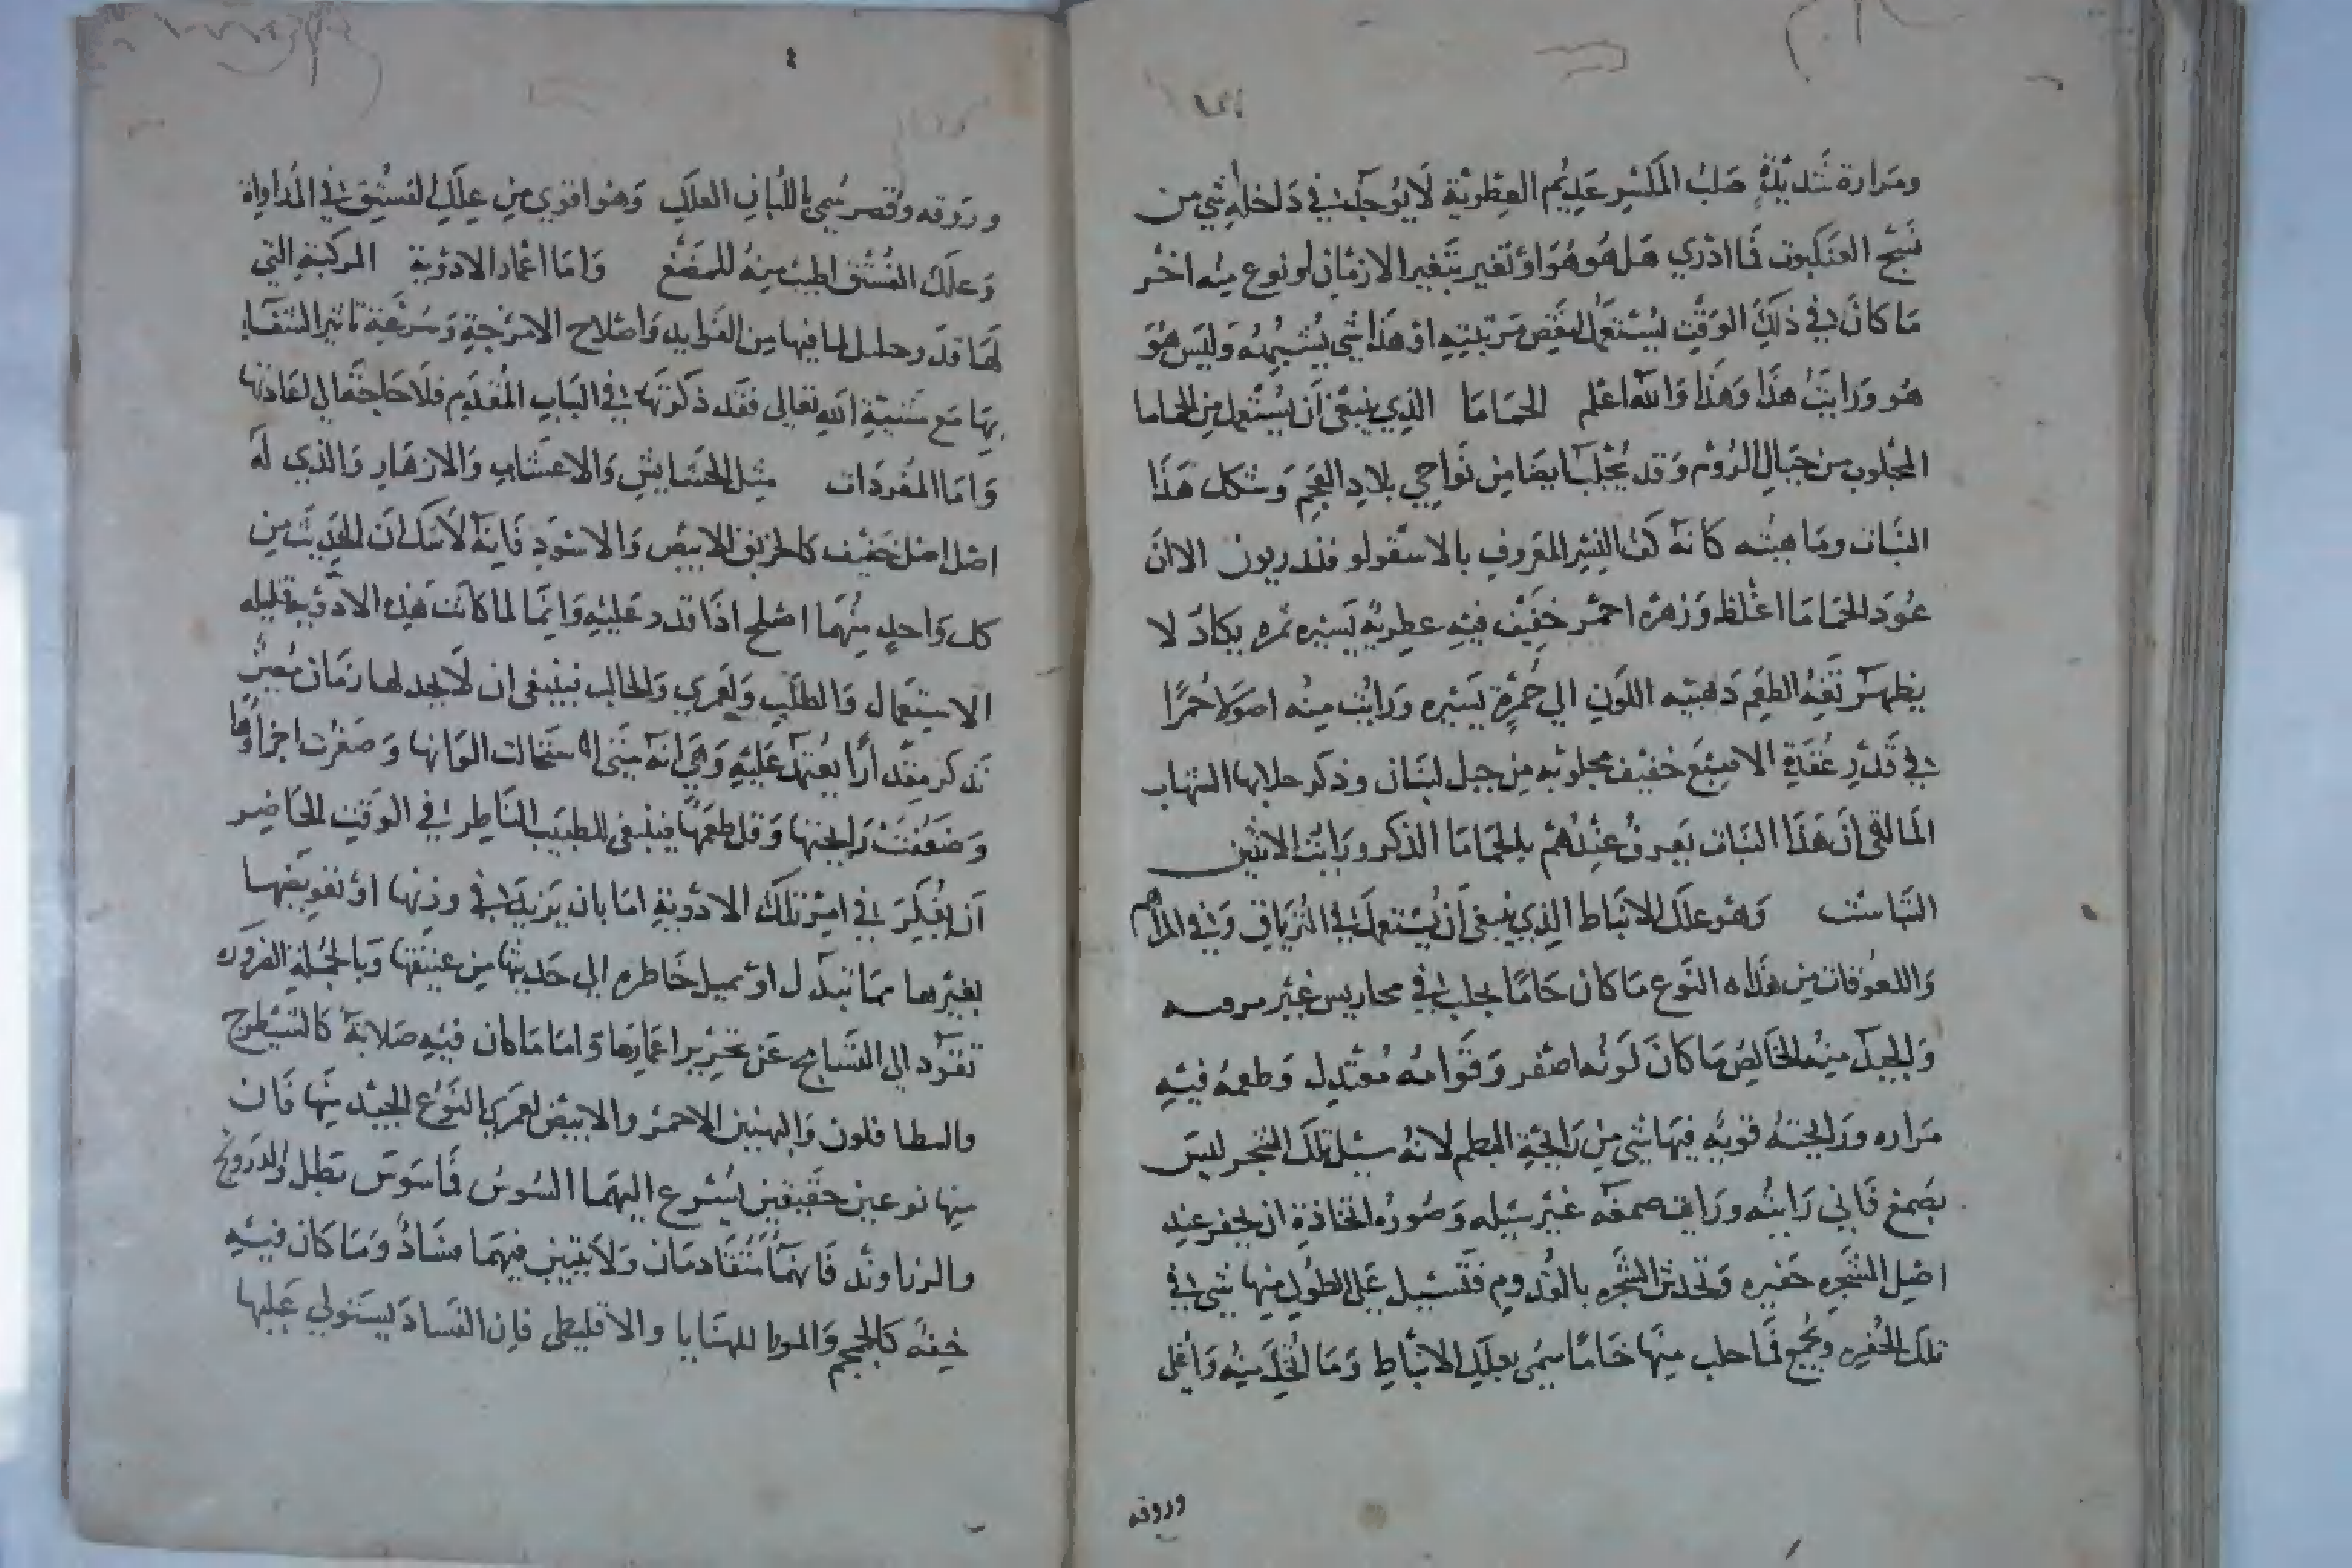 ومرارة شديدة صلب المكسر عديم العطرية لا يوجد في داخله شي من
نسج العنكبوت فما ادري هل هو هو او تغير بتغير الازمان او نوع منه اخر
ما كان في ذلك الوقت يستعمل لنقص مرتبته او هذا شي يشبهه وليس هو
هو ورايت هذا وهذا والله اعلم الحماما الذي ينبغي ان يستعمل من الحماما
المجلوب من جبال الروم وقد يجلب ايضا من نواحي بلاد العجم وشكل هذا
النبات وماهيته كانه كف النسر المعروف بالاسقولوفندريون الا ان
عود الحماما اغلظ وزهره احمر خفيف فيه عطرية يسيره تمره يكاد لا
يظهر تفه الطعم ذهبيه اللون الي حمرة يسيره ورايت منه اصولا حمرا
في قدر عقدة الاصبع خفيف مجلوبه من جبل لبنان وذكر جلابها الشهاب
المالقي ان هذا النبات يعرف عندهم بالحماما الذكر ورايت الاثنين
وهو علك الانباط الذي ينبغي ان يستعمل في الترياق وفي المراهم
واللعوقات من هذاه النوع ما كان خاما يجلب في محاريس غير
والجيد منه الخالص ما كان لونه اصفر وقوامه معتدل وطعمه فيه
مراره ورايحته قويه فيها شي من رايحة البطم لانه سيل تلك الشجر ليس
بصمغ فاني رايته ورايت صمغه غير سيله وصورة اتخاذة ان يحفر عند
اصل الشجره حفيره وتخدش الشجره بالقدوم فتسيل على الطول منها شي في
تلك الحفره ويجمع فما جلب منها خاما سمي بعلك الانباط وما اتخذ منه واغلي
وروقه
٤
وروقه وقصر سمي باللبان العلك وهو اقوي من علك الفستق في المداواة
وعلك الفستق اطيب منه للمضغ واما اعمار الادوية المركبة التي
لها قدر جليل لما فيها من الفوايد واصلاح الامزجة وسرعة تاثير الشفا
بها مع مشية الله تعالى فقد ذكرتها في الباب المقدم فلا حاجة الى اعادتها
واما المفردات مثل الحشايش والاعشاب والازهار والذي له
اصل اصل خفيف كالخربق الابيض والاسود فانه لا شك ان الحديث من
كل واحد منهما اصلح اذا قدر عليه وانما لما كانت هذه الادوية قليله
الاستعمال والطلب ولعمري والجالب فينبغي ان لا يحد لها زمان معين
تذكر مقدارا يعتمد عليه وهي انه متى استحالت الوانها وصغرت اجزاوها
وضعفت رايحتها وقل طعمها فينبغي للطبيب الناظر في الوقت الحاضر
ان يفكر في امر تلك الادوية اما بان يزيد في وزنها او تعويضها
بغيرها مما تبدل او يميل خاطره الي حديثها من عتيقها وبالجملة الضروره
تقود الي التسامح عن تحرير اعمارها واما ما كان فيه صلابة كالشيطرج
والبهمنين الاحمر والابيض لعمري النوع الجيد منها فان
منها نوعين حقيقين يسرع اليهما السوس فما سوس بطل والدرونج
والزراوند فانهما يتقادمان ولا يتبين فيهما فساد وما كان فيه
خفة كالجعجم والاقليطي فان الفساد يستولي عليها